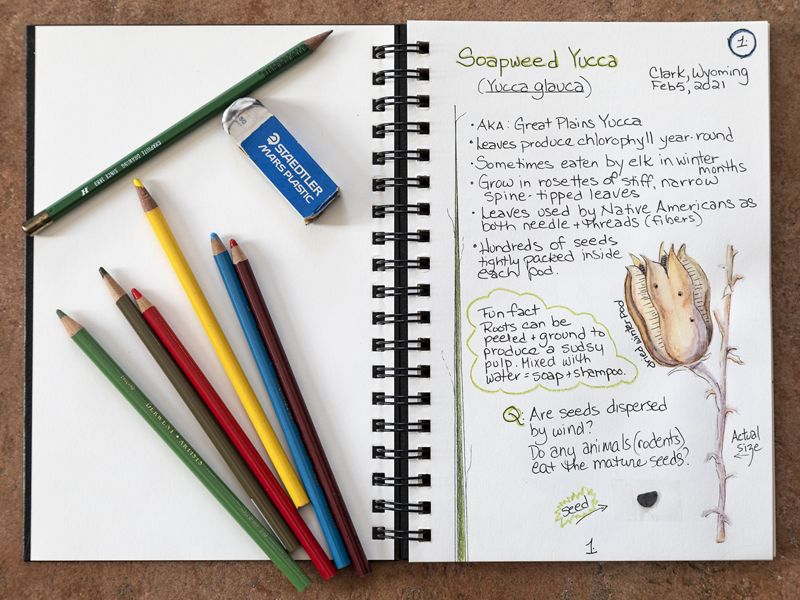 1.
Soapweed Yucca
(Yucca glauca)
Clark, Wyoming
Feb 5, 2021
• AKA: Great Plains Yucca
• Leaves produce chlorophyll year-round
• Sometimes eaten by elk in winter
months
• Grow in rosettes of stiff, narrow
spine-tipped leaves
• Leaves used by Native Americans as
both needle + threads (fibers)
• Hundreds of seeds
tightly packed inside
each pod.
dried winter pod
Fun fact
Roots can be
peeled + ground to
produce a sudsy
pulp. Mixed with
water = soap + shampoo.
Q: Are seeds dispersed
by wind?
Do any animals (rodents)
eat the mature seeds?
Actual
size
seed
1.
STAEDTLER
MARS PLASTIC
GRAPHITE DRAWING SINCE 1889 H
DERWENT ARTISTS